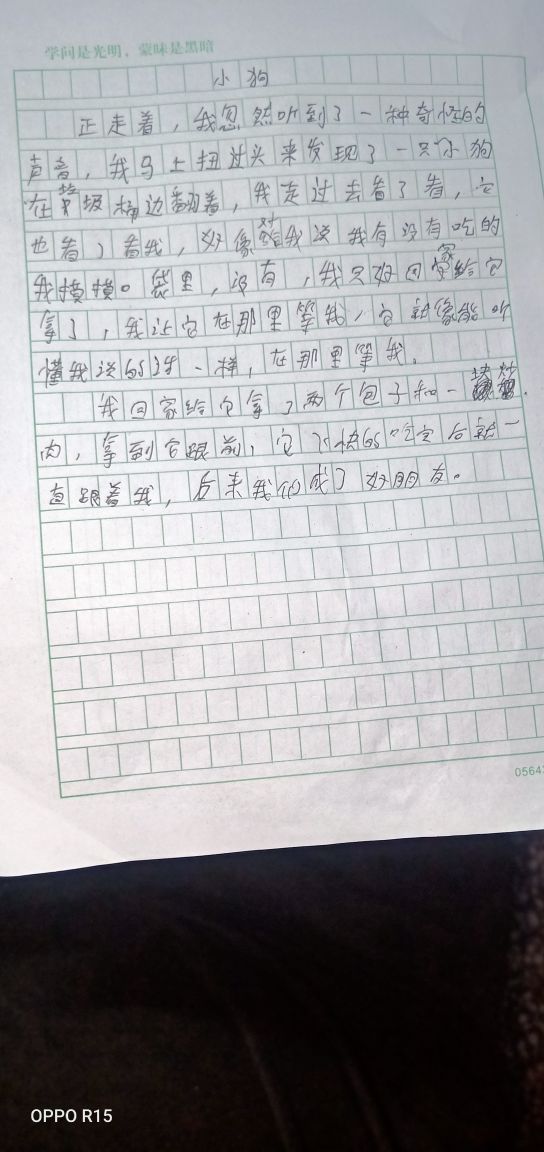 学问是光明，蒙昧是黑暗
小狗
正走着，我忽然听到了一种奇怪的
声音，我马上扭过头来发现了一只小狗
在垃圾桶边翻着，我走过去看了看，它
也看了看我，好像对我说我有没有吃的
我摸摸口袋里，没有，我只好回家给它
拿了，我让它在那里等我，它就像能听
懂我说的话一样，在那里等我。
我回家给它拿了两个包子和一块炒
肉，拿到它跟前，它飞快的吃完后就一
直跟着我，后来我们成了好朋友。
0564
OPPO R15